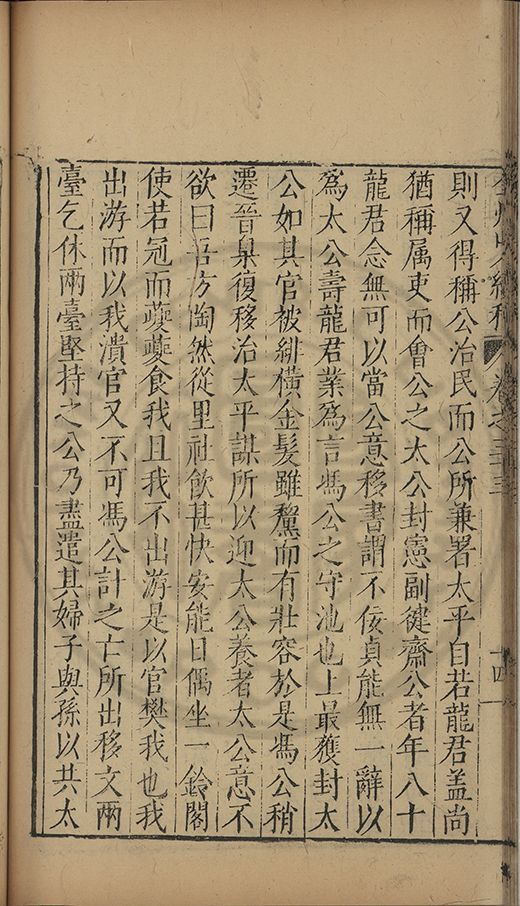 弇州山人續稿 卷之三十三 十四
則又得稱公治民而公所兼署太平自若龍君盖尚
猶稱属吏而會公之太公封憲副健齋公者年八十
龍君念無可以當公意移書謂不佞貞能無一辭以
為太公壽龍君業為言馮公之守池也上最獲封太
公如其官被緋橫金髮雖鬣而有壯容於是馮公稍
遷晉臬復移治太平謀所以迎太公養者太公意不
欲曰吾方陶然從里社飲甚快安能日偶坐一鈴閣
使若冠而虁虁食我且我不出游是以官樊我也我
出游而以我潰官又不可馮公計之亡所出移文兩
臺乞休兩臺堅持之公乃盡遣其婦子與孫以共太